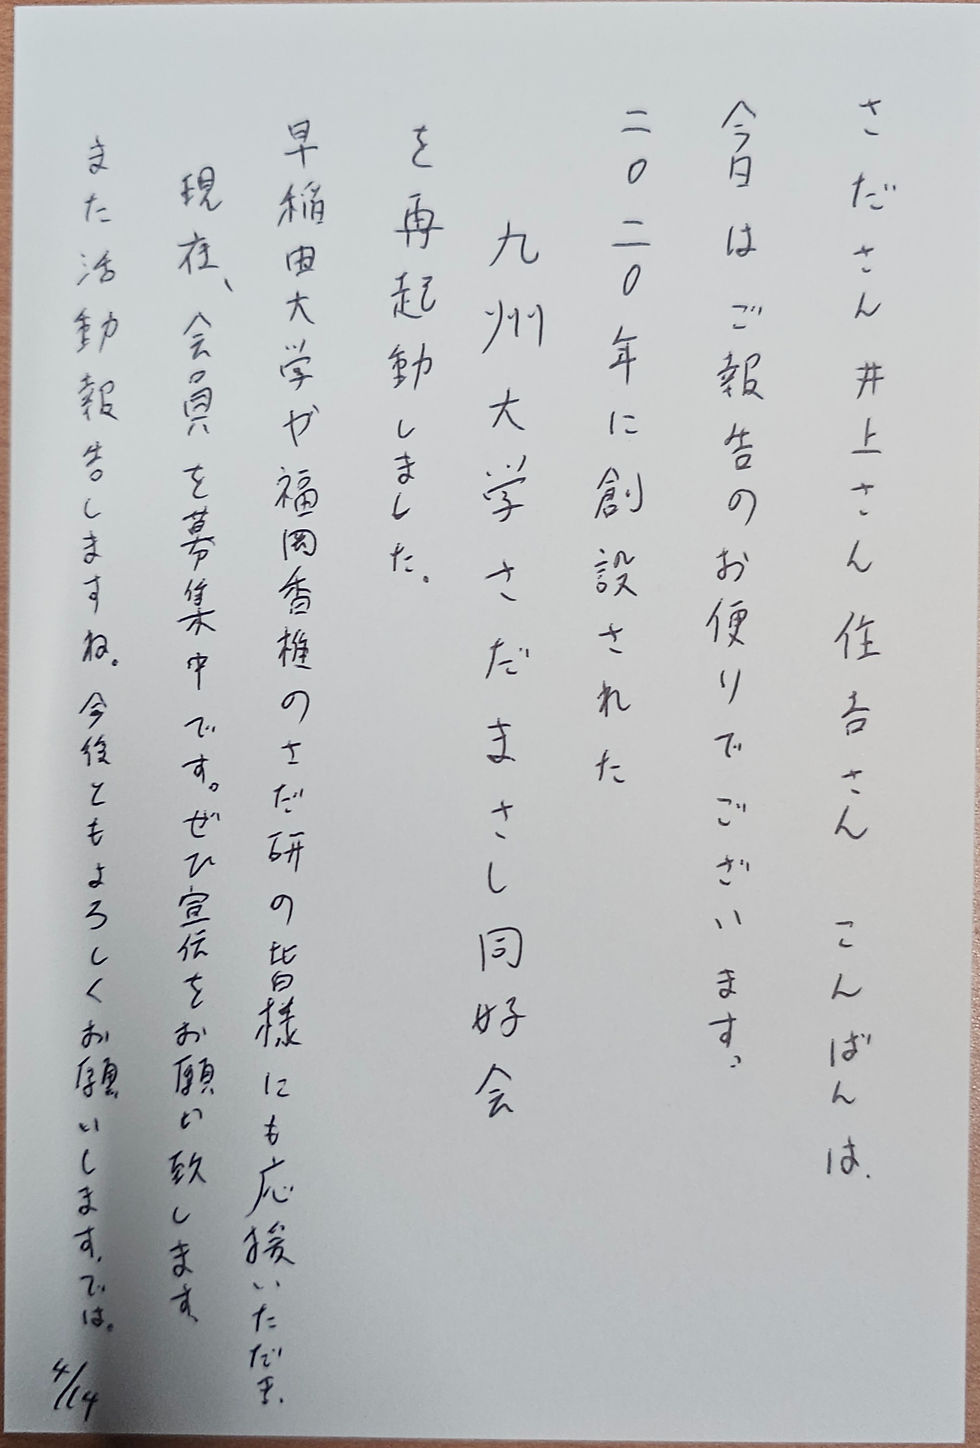 さださん井上さん住吉さん　こんばんは。
今日はご報告のお便りでございます。
二〇二〇年に創設された
九州大学さだまさし同好会
を再起動しました。
早稲田大学や福岡香椎のさだ研の皆様にも応援いただき、
現在、会員を募集中です。ぜひ宣伝をお願い致します。
また活動報告しますね。今後ともよろしくお願いします。では。
4/14